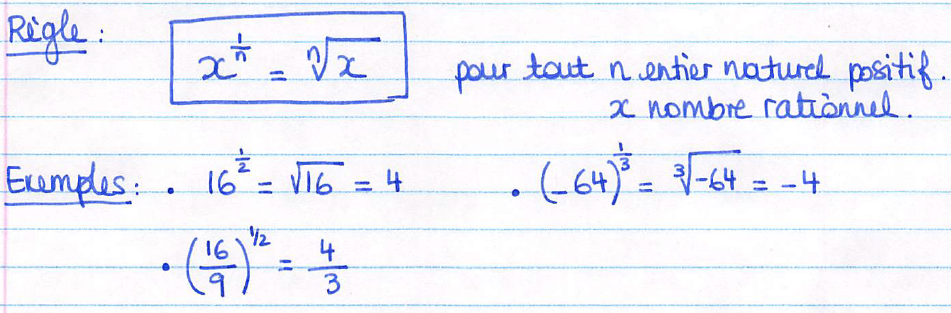 Règle : x^{1/n} = ⁿ√x pour tout n entier naturel positif.
x nombre rationnel.
Exemples : • 16^{1/2} = √16 = 4 • (-64)^{1/3} = ³√-64 = -4
• (16/9)^{1/2} = 4/3